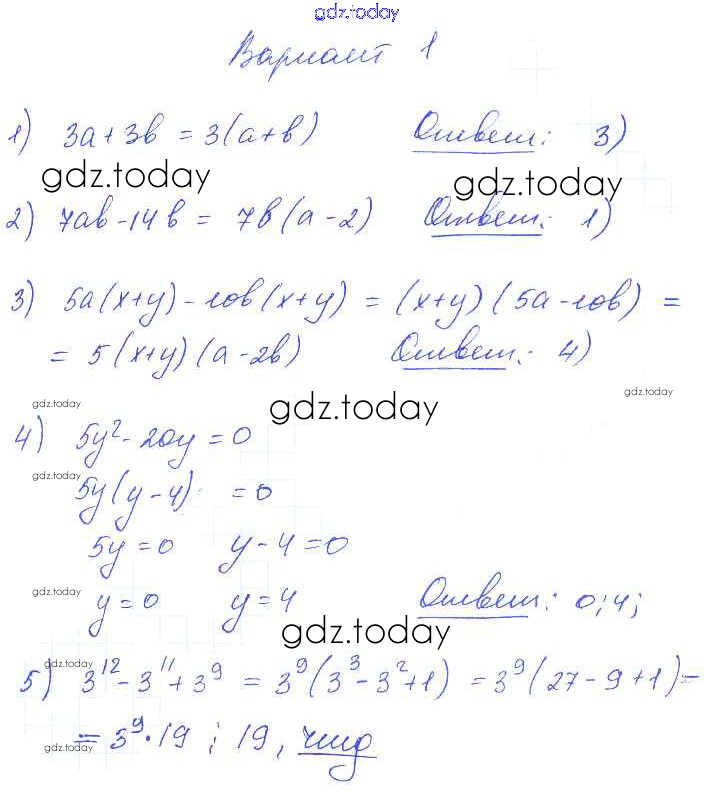 gdz.today
Вариант 1
1) 3a+3b = 3(a+b) Ответ: 3)
gdz.today gdz.today
2) 7ab-14b = 7b(a-2) Ответ: 1)
3) 5a(x+y)-10b(x+y) = (x+y)(5a-10b) =
= 5(x+y)(a-2b) Ответ: 4)
gdz.today
gdz.today gdz.today
4) 5y²-20y=0
gdz.today
5y(y-4) =0
5y=0 y-4=0
gdz.today
y=0 y=4 Ответ: 0; 4;
gdz.today
gdz.today
5) 3¹²-3¹¹+3⁹ = 3⁹(3³-3²+1) = 3⁹(27-9+1)=
= 3⁹·19 ⋮ 19, чтд
gdz.today